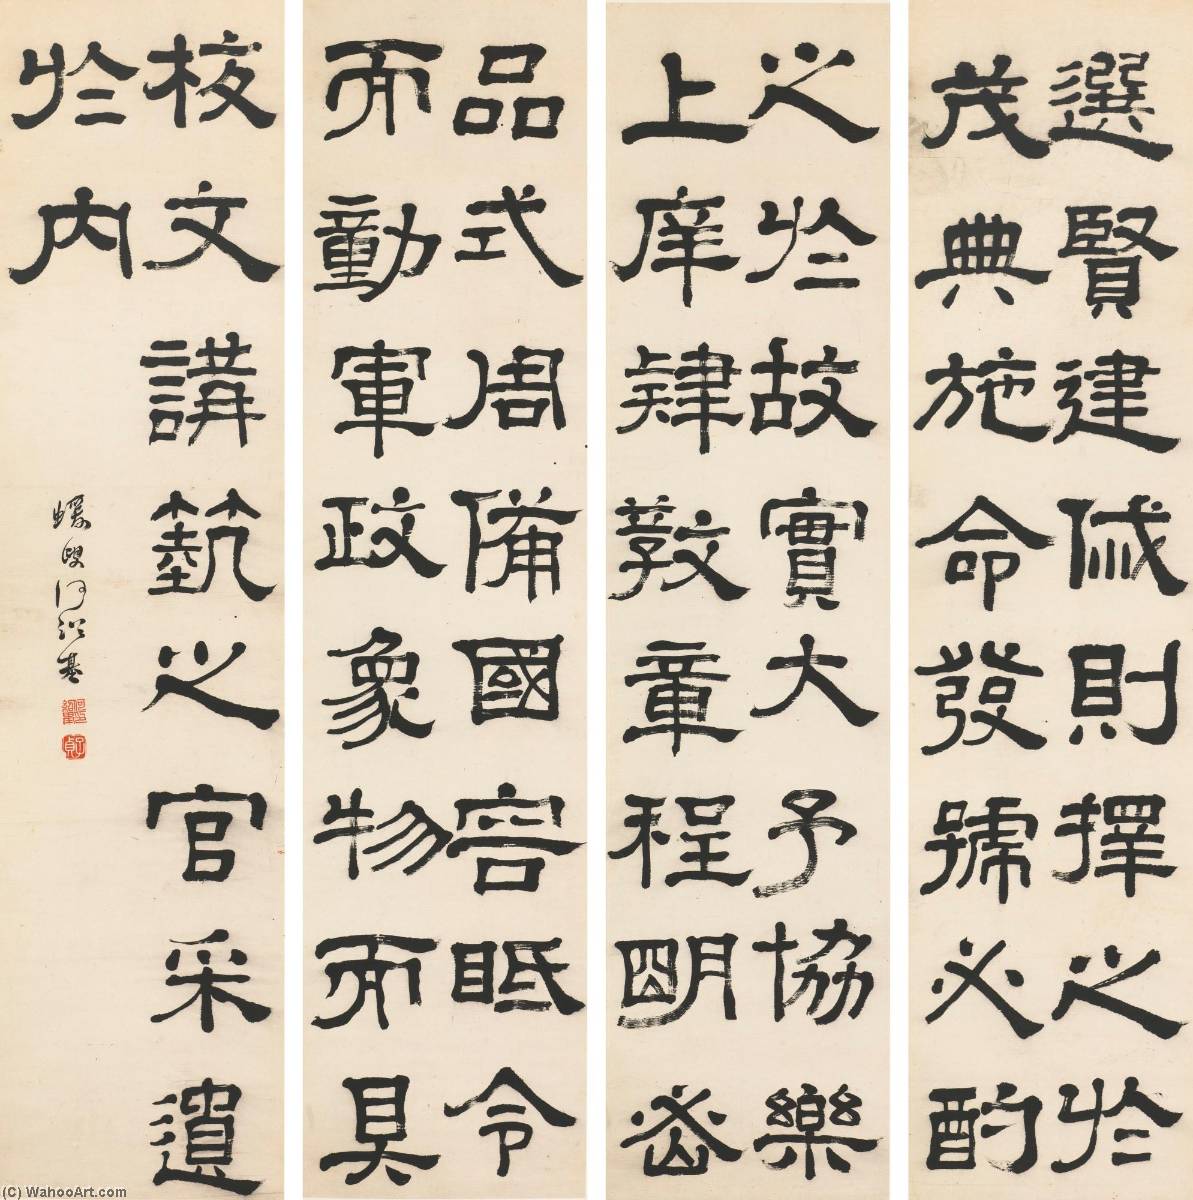 選賢建戚則擇之於
茂典施命發號必酌
之於故實大予協樂
上庠肄教章程明密
品式周備國容眡令
而動軍政象物而具
校文講藝之官采遺
於內
蝯叟何紹基
子貞
(C) WahooArt.com